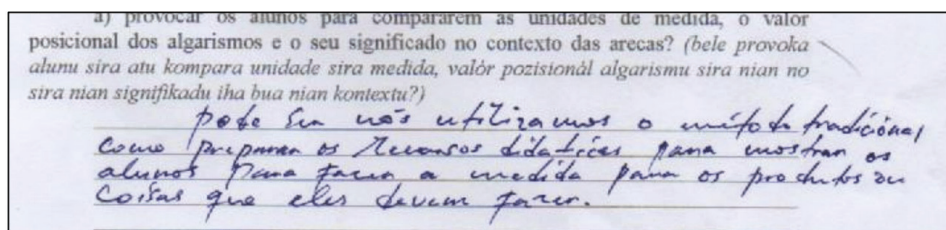 a) provocar os alunos para compararem as unidades de medida, o valor
posicional dos algarismos e o seu significado no contexto das arecas? (bele provoka
alunu sira atu kompara unidade sira medida, valór pozisionál algarismu sira nian no
sira nian signifikadu iha bua nian kontextu?)
pode ser nós utilizamos o método tradicional
como preparar os recursos didaticas para mostrar os
alunos para fazer a medida para os produtos ou
coisas que eles devem fazer.